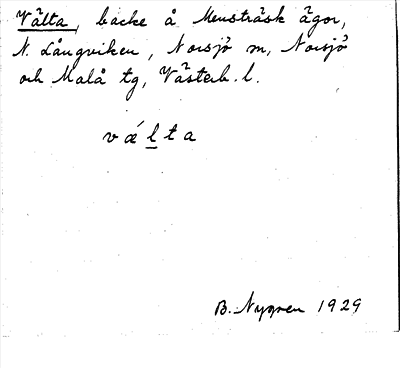 Välta, backe å Mensträsk ägor,
N. Långviken, Norsjö sn, Norsjö
och Malå tg, Västerb. l.
vǽl̲ta
B. Nygren 1929